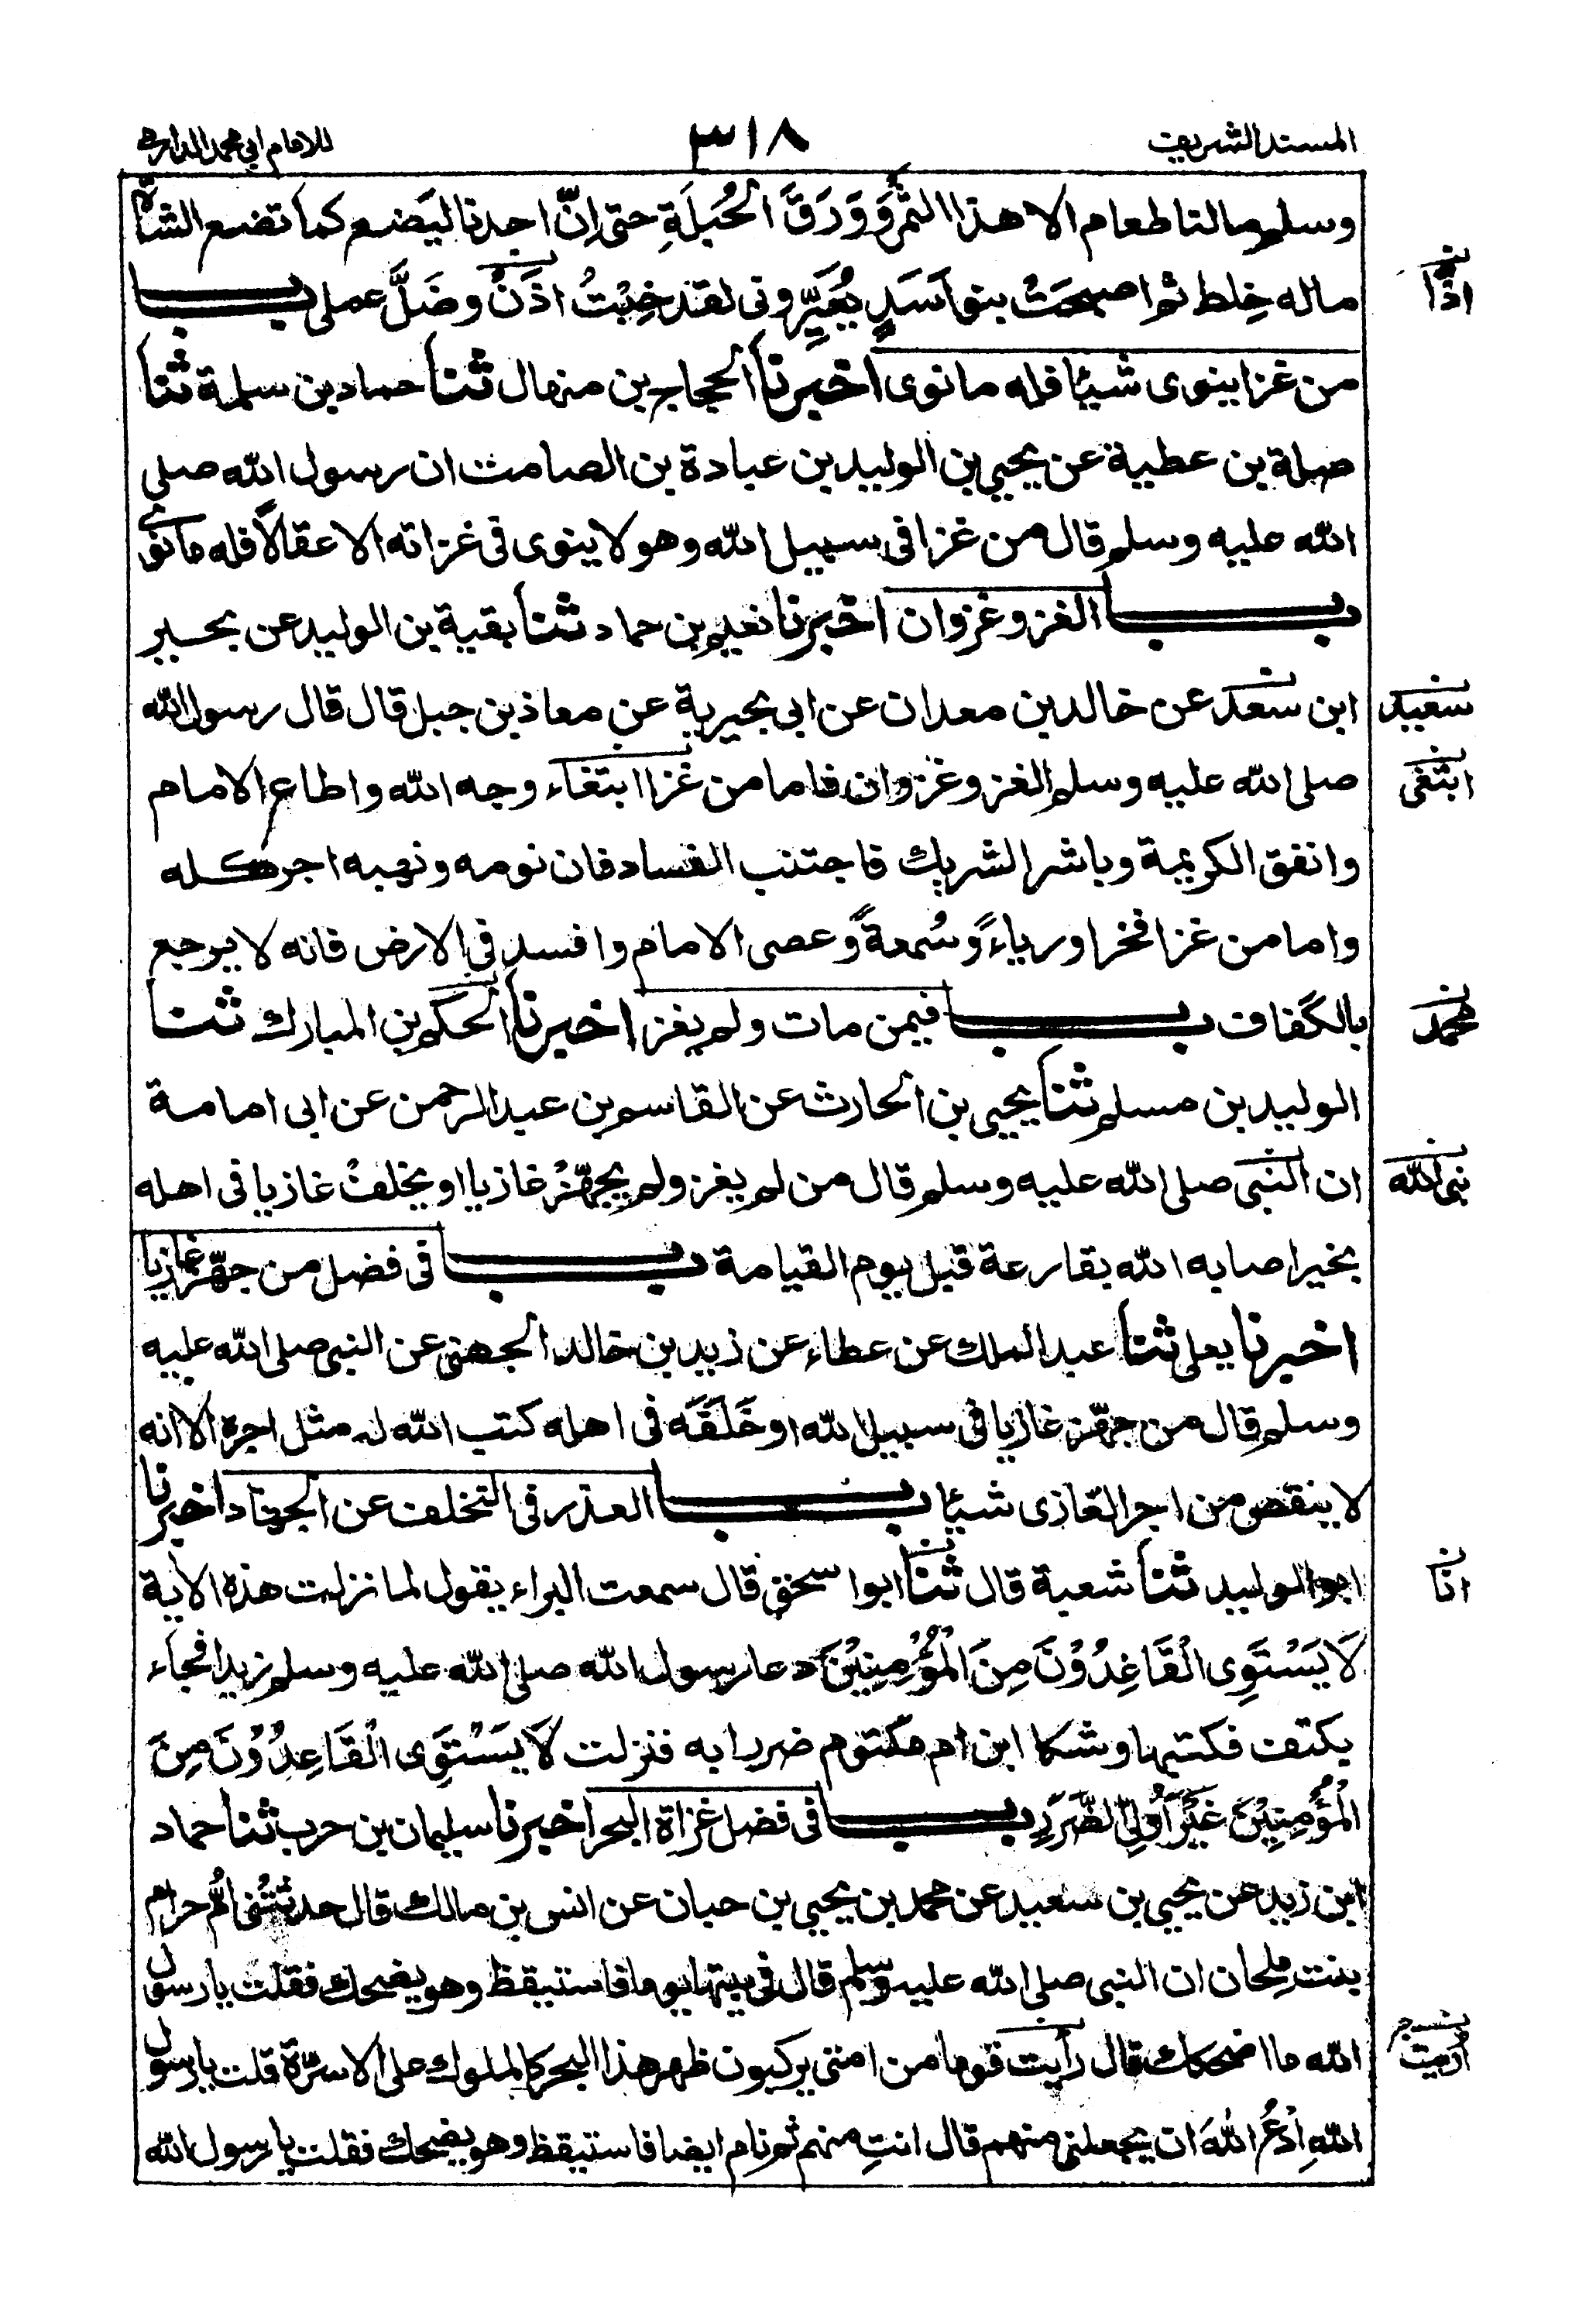 المسند الشريف ٣١٨ للامام ابي محمد الدارمي
وسلم مالنا طعام الا هذا الثمر وَوَرَقَ الحُبلَةِ حتى اِنّ احدنا ليَضع كما تضع الشاة
ماله خِلط ثم اصبحَتْ بنو اَسَدٍ يُعَيِّروني لقد خِبْتُ اذَنْ وضَلَّ عملى بــاب
اذًا
من غزا ينوى شيئا فله مانوى اخبرنا الحجاج بن منهال ثنا حماد بن سلمة ثنا
صلة بن عطية عن يحيي بن الوليد بن عبادة بن الصامت ان رسول الله صلى
الله عليه وسلم قال من غزا فى سبيل الله وهو لا ينوى فى غزاته الا عقالًا فله مانوى
بــاب الغزو غزوان اخبرنا نعيم بن حماد ثنا بقية بن الوليد عن بحير
ابن سعد عن خالد بن معدان عن ابى بحيرية عن معاذ بن جبل قال قال رسول الله
سعيد
صلى الله عليه وسلم الغزو غزوان فاما من غزا ابتغاء وجه الله واطاع الامام
ابتغى
وانفق الكريمة وباشر الشريك فاجتنب الفساد فان نومه ونهبه اجر كله
واما من غزا فخرا ورياءً وسُمعةً وعصى الامام وافسد فى الارض فانه لا يرجع
بالكَفاف بــاب فيمن مات ولم يغز اخبرنا الحكم بن المبارك ثنا
محمد
الوليد بن مسلم ثنا يحيي بن الحارث عن القاسم بن عبد الرحمن عن ابى امامة
ان النبى صلى الله عليه وسلم قال من لم يغز ولم يجهّزْ غازيا او يخلفْ غازيا فى اهله
نبى الله
بخير اصابه الله بقارعة قبل يوم القيامة بــاب فى فضل من جهّز غازيا
اخبرنا يعلى ثنا عبد الملك عن عطاء عن زيد بن خالد الجهنى عن النبى صلى الله عليه
وسلم قال من جهّز غازيا فى سبيل الله او خَلَفَه فى اهله كتب الله له مثل اجره الا انه
لا ينقص من اجر الغازى شيئا بــاب العذر فى التخلف عن الجهاد اخبرنا
ابو الوليد ثنا شعبة قال ثنا ابو اسحق قال سمعت البراء يقول لما نزلت هذه الاٰية
انا
لَا يَسْتَوِى الْقَاعِدُوْنَ مِنَ الْمُؤْمِنِيْنَ دعا رسول الله صلى الله عليه وسلم زيدا فجاء
بكتف فكتبها وشكا ابن ام مكتوم ضررا به فنزلت لَا يَسْتَوِى الْقَاعِدُوْنَ مِنَ
الْمُؤْمِنِيْنَ غَيْرُ اُولِى الضَّرَرِ بــاب فى فضل غزاة البحر اخبرنا سليمان بن حرب ثنا حماد
ابن زيد عن يحيي بن سعيد عن محمد بن يحيي بن حبان عن انس بن مالك قال حدثتنى اُمّ حرام
بنت مِلحان ان النبى صلى الله عليه وسلم قال فى بيتها يوما فاستيقظ وهو يضحك فقلت يا رسول
الله ما اضحكك قال رأيت قوما من امتى يركبون ظهر هذا البحر كالملوك على الاسرّة قلت يا رسول
اُريت
اللهِ اُدْعُ اللهَ ان يجعلنى منهم قال انتِ منهم ثم نام ايضا فاستيقظ وهو يضحك فقلت يا رسول الله